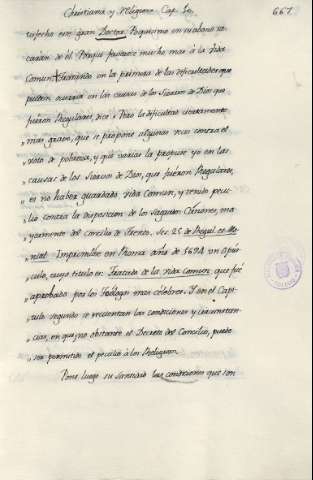 Christiana y Religiosa Cap. 50. 667
tisfecha este gran Doctor. Poquisimo en verdad no
carian de èl. Porque pertenece mucho mas à la vida
Comun. Tratando en la primera de las dificultades que
pueden ocurrir en las causas de los Siervos de Dios que
fueron Regulares, dice: Pero la dificultad ciertamente
„ mas grave, que se propone algunas veces cerca el
„ voto de pobreza, y que varias la propuse yo en las
„ causas de los Siervos de Dios, que fueron Regulares,
„ es no haber guardado vida Comun, y tenido pecu-
„ lio contra la disposicion de los Sagrados Cánones, ma-
„ yormente del Concilio de Trento. Ses. 25 de Regul. et Mo-
„ nial. Imprimióse en Roma año de 1694 un opus-
„ culo, cuyo titulo es: Tratado de la vida Comun, que fué
„ aprobado por los Teólogos mas célebres. Y en el Capi-
„ tulo segundo se recuentan las condiciones y circunstan-
„ cias, en que, no obstante el Decreto del Concilio, puede
„ ser permitido el peculio à los Religiosos.
Pone luego su Santidad las condiciones que son